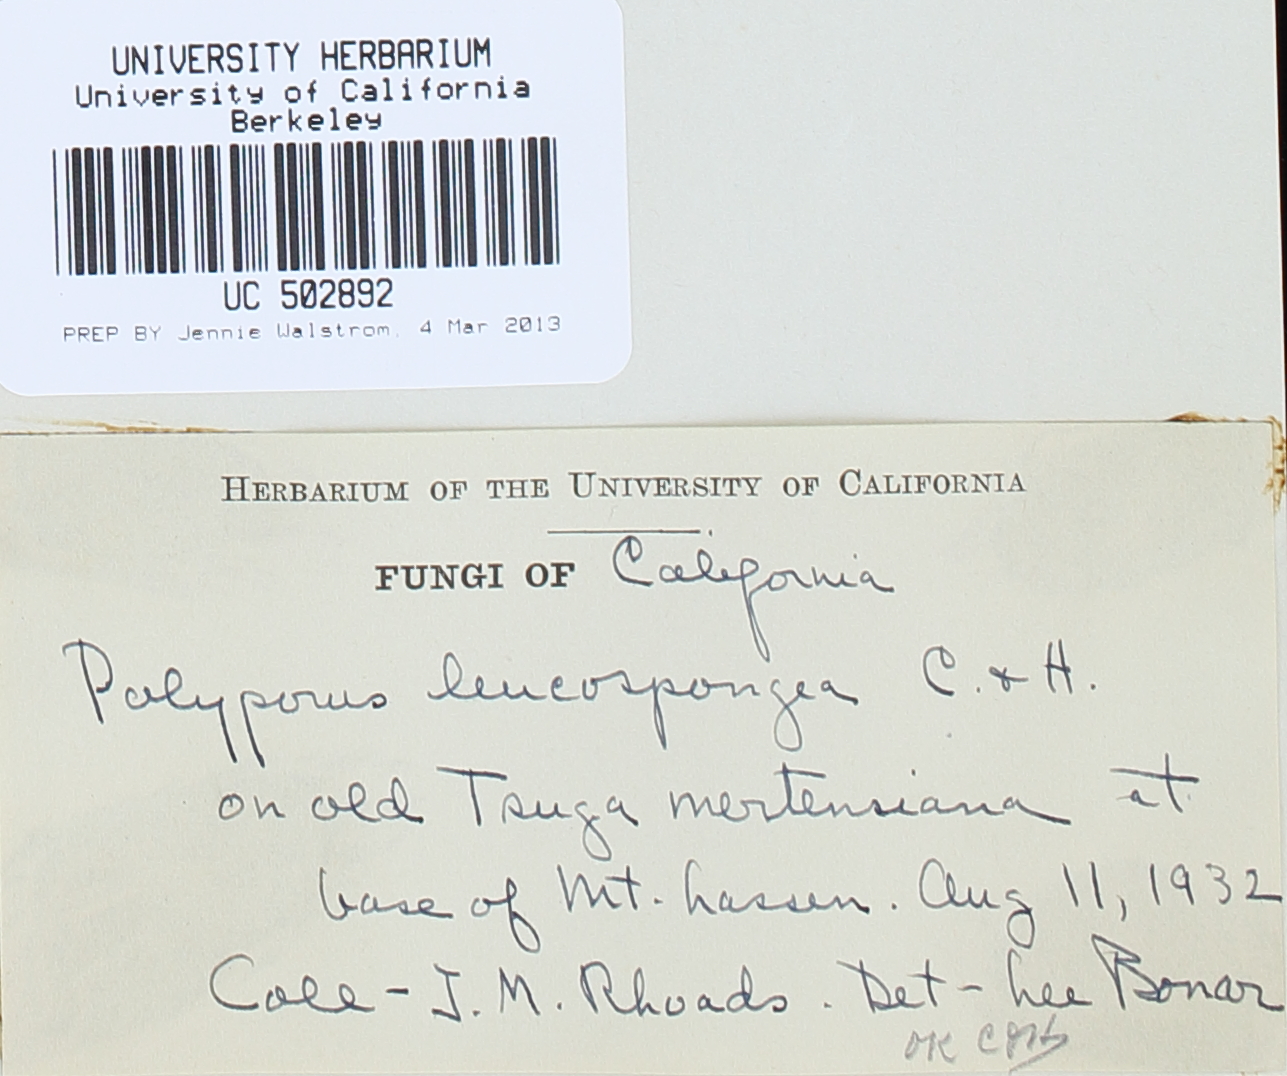 UNIVERSITY HERBARIUM
University of California
Berkeley
UC 502892
PREP BY Jennie Walstrom, 4 Mar 2013
HERBARIUM OF THE UNIVERSITY OF CALIFORNIA
FUNGI OF California
Polyporus leucospongea C. & H.
on old Tsuga mertensiana at
base of Mt. Lassen. Aug 11, 1932
Coll - J. M. Rhoads. Det - Lee Bonar
OK